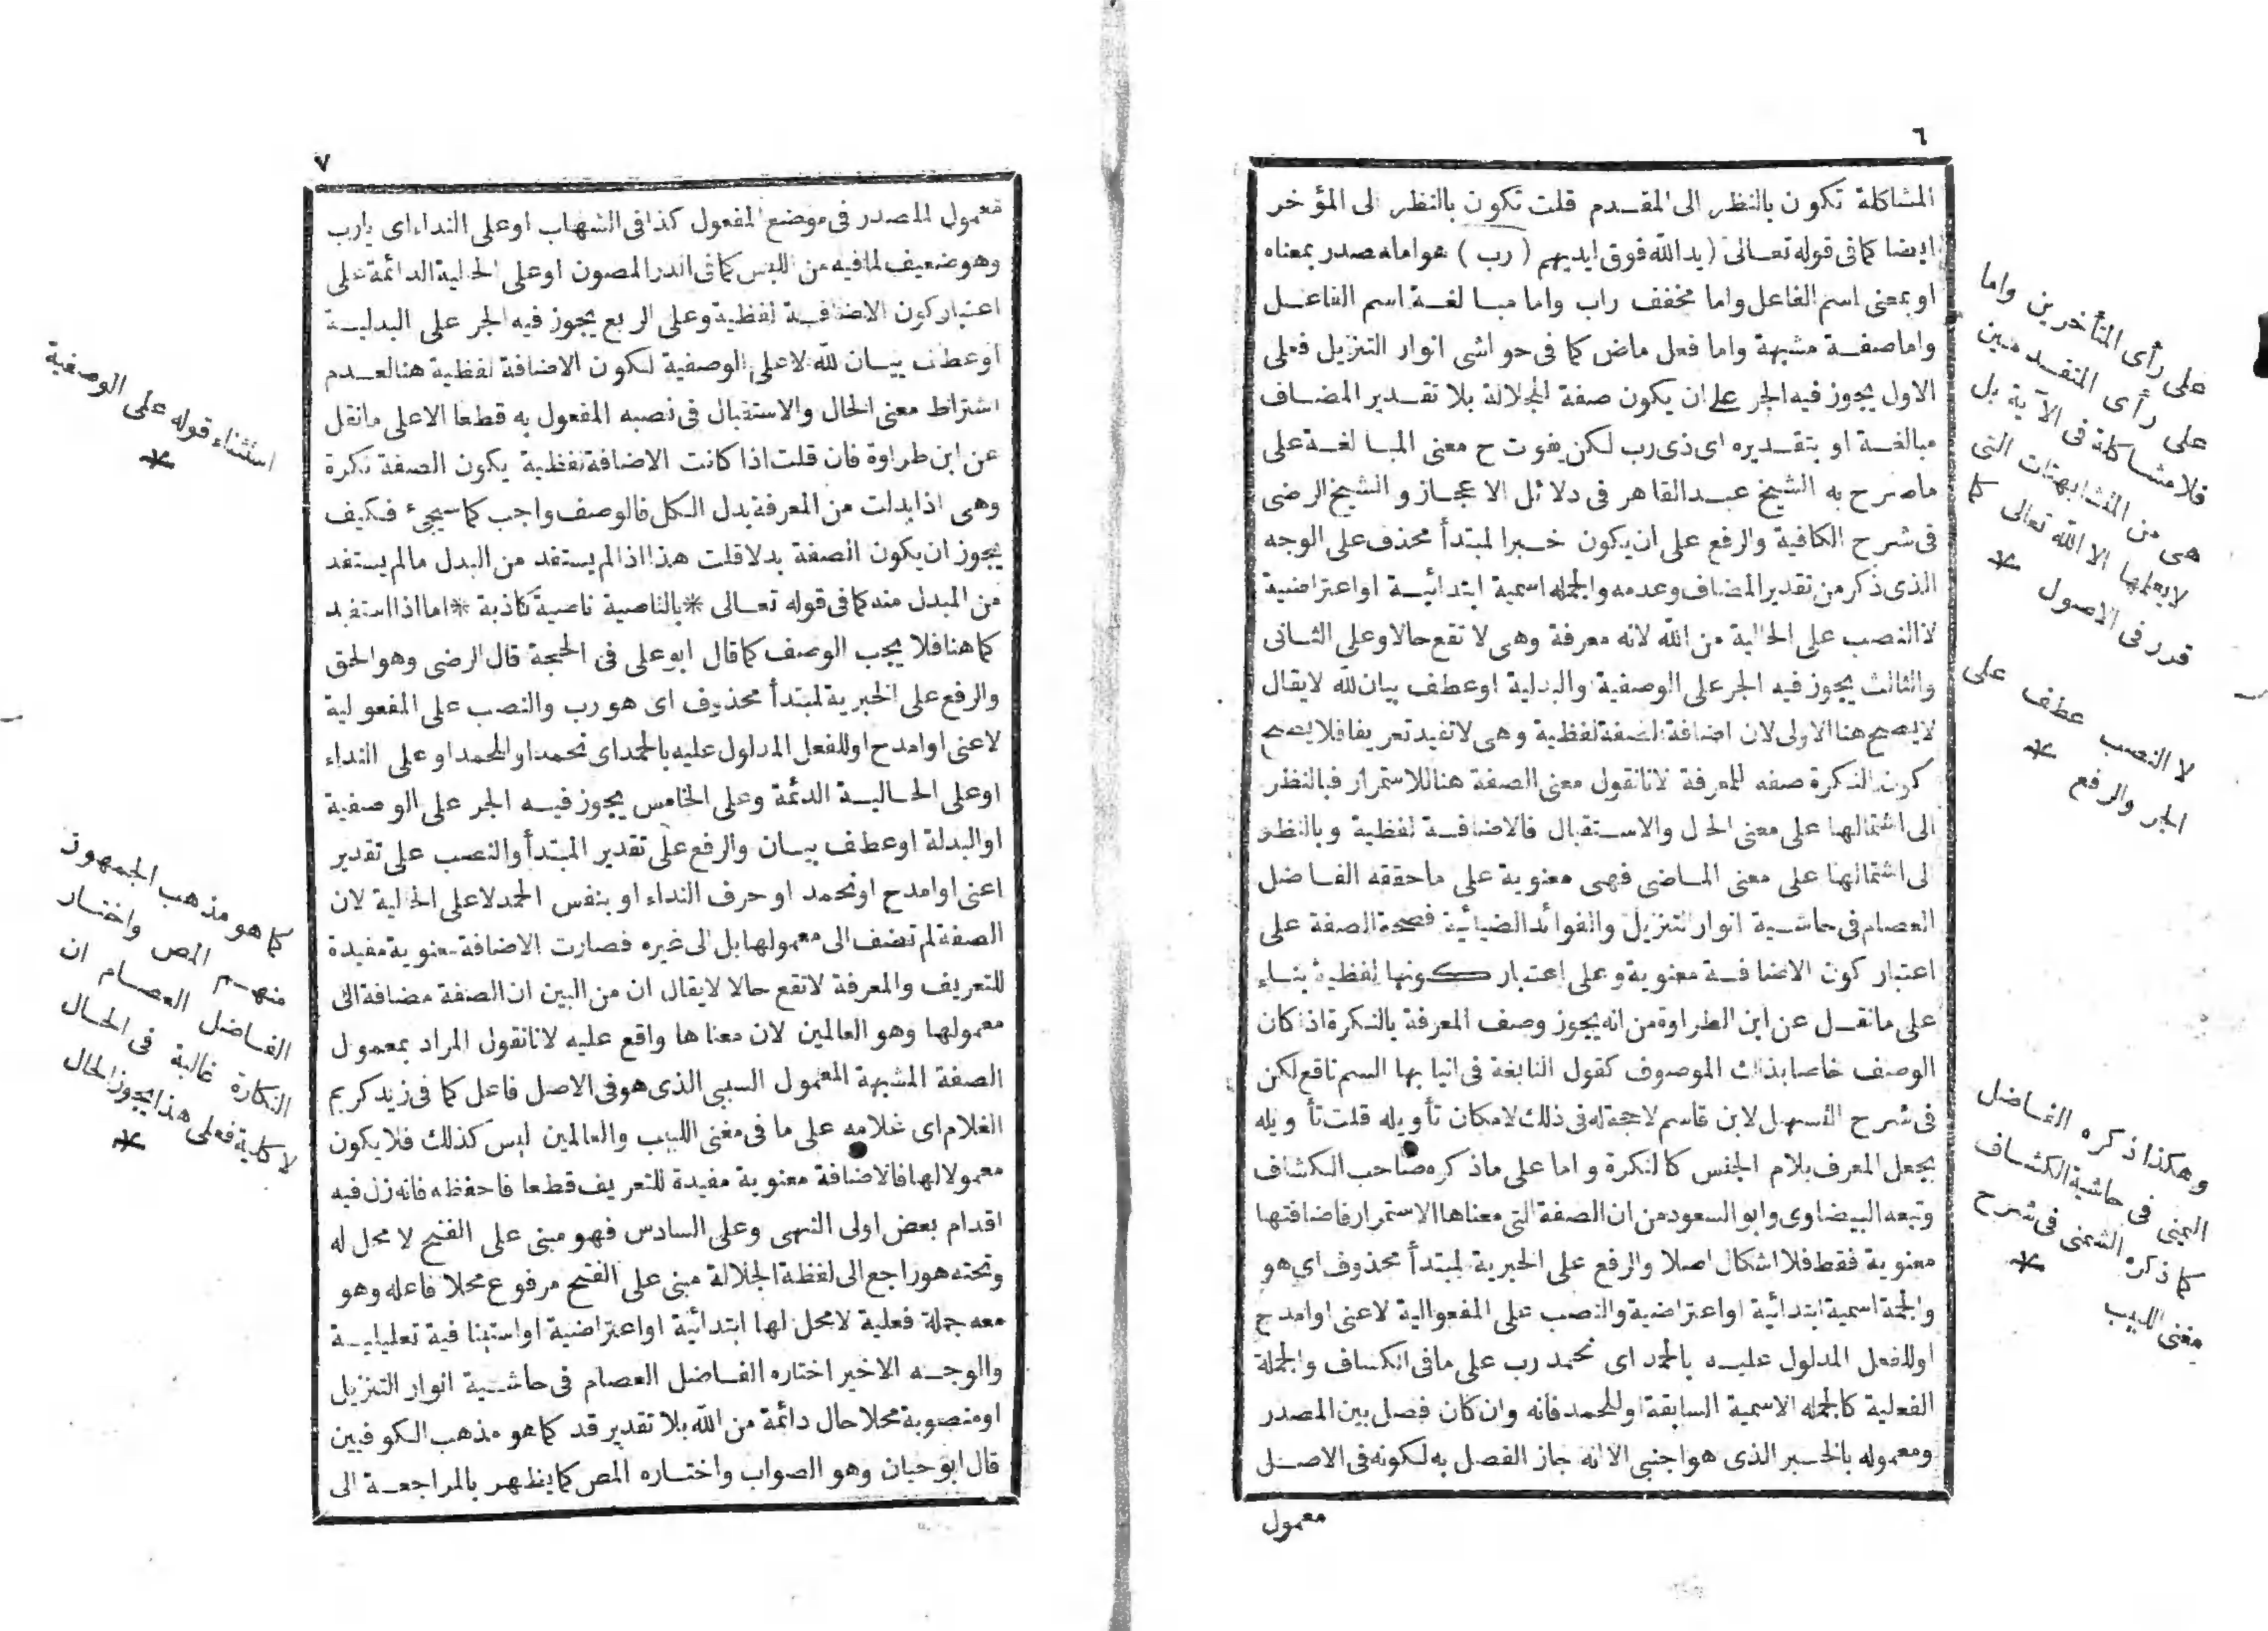 ٦
المشاكلة تكون بالنظر الى المقدم قلت تكون بالنظر الى المؤخر
ايضا كما فى قوله تعالى (يد الله فوق ايديهم (رب) هو اما مصدر بمعناه
او بمعنى اسم الفاعل واما مخفف راب واما مبالغة اسم الفاعل
واما صفة مشبهة واما فعل ماض كما فى حواشى انوار التنزيل فعلى
الاول يجوز فيه الجر على ان يكون صفة للجلالة بلا تقدير المضاف
مبالغة او بتقديره اى ذى رب لكن يفوت ح معنى المبالغة على
ماصرح به الشيخ عبد القاهر فى دلائل الاعجاز والشيخ الرضى
فى شرح الكافية والرفع على ان يكون خبرا لمبتدأ محذف على الوجه
الذى ذكر من تقدير المضاف وعدمه والجملة اسمية ابتدائية او اعتراضية
لا النصب على الحالية من الله لانه معرفة وهى لا تقع حالا وعلى الثانى
والثالث يجوز فيه الجر على الوصفية والبدلية او عطف بيان لله لا يقال
لا يصح هنا الاولى لان اضافة الصفة لفظية وهى لا تفيد تعريفا فلا يصح
كون النكرة صفه للمعرفة لانا نقول معنى الصفة هنا للاستمرار فبالنظر
الى اشتمالها على معنى الحال والاستقبال فالاضافة لفظية وبالنظر
الى اشتمالها على معنى الماضى فهى معنوية على ماحققه الفاضل
العصام فى حاشية انوار التنزيل والفوائد الضيائية فصحة الصفة على
اعتبار كون الاضافة معنوية وعلى اعتبار كونها لفظية بناء
على مانقل عن ابن الطراوة من انه يجوز وصف المعرفة بالنكرة اذا كان
الوصف خاصا بذلك الموصوف كقول النابغة فى انيابها السم ناقع لكن
فى شرح التسهيل لابن قاسم لا حجة له فى ذلك لامكان تأويله قلت تأويله
يجعل المعرف بلام الجنس كالنكرة واما على ماذكره صاحب الكشاف
وتبعه البيضاوى وابو السعود من ان الصفة التى معناها الاستمرار فاضافتها
معنوية فقط فلا اشكال اصلا والرفع على الخبرية لمبتدأ محذوف اى هو
والجملة اسمية ابتدائية او اعتراضية والنصب على المفعوالية لاعنى او امدح
او للفعل المدلول عليه بالحمد اى نحمد رب على مافى الكشاف والجملة
الفعلية كالجملة الاسمية السابقة او للحمد فانه وان كان فصل بين المصدر
ومعموله بالخبر الذى هو اجنبى الا انه جاز الفصل به لكونه فى الاصل
معمول
على رأى المتأخرين واما
على رأى المتقدمين
فلا مشاكلة فى الآية بل
هى من المتشابهات التى
لا يعلمها الا الله تعالى كما
قدر فى الاصول *
لا النصب عطف على
الجر والرفع *
وهكذا ذكره الفاضل
اليمنى فى حاشية الكشاف
كما ذكره الشمنى فى شرح
مغنى اللبيب *
٧
معمول للمصدر فى موضع المفعول كذا فى الشهاب او على النداء اى يارب
وهو ضعيف لما فيه من اللبس كما فى الدر المصون او على الحالية الدائمة على
اعتبار كون الاضافة لفظية وعلى الربع يجوز فيه الجر على البدلية
او عطف بيان لله لا على الوصفية لكون الاضافة لفظية هنا لعدم
اشتراط معنى الحال والاستقبال فى نصبه المفعول به قطعا الا على مانقل
عن ابن طراوة فان قلت اذا كانت الاضافة لفظية يكون الصفة نكرة
وهى اذا بدلت من المعرفة بدل الكل فالوصف واجب كما سيجئ فكيف
يجوز ان يكون الصفة بدلا قلت هذا اذا لم يستفد من البدل مالم يستفد
من المبدل منه كما فى قوله تعالى *بالناصية ناصية كاذبة* اما اذا استفيد
كما هنا فلا يجب الوصف كما قال ابو على فى الحجة قال الرضى وهو الحق
والرفع على الخبرية لمبتدأ محذوف اى هو رب والنصب على المفعولية
لاعنى او امدح او للفعل المدلول عليه بالحمد اى نحمد او للحمد او على النداء
او على الحالية الدئمة وعلى الخامس يجوز فيه الجر على الوصفية
او البدلة او عطف بيان والرفع على تقدير المبتدأ والنصب على تقدير
اعنى او امدح او نحمد او حرف النداء او بنفس الحمد لا على الحالية لان
الصفة لم تضف الى معمولها بل الى غيره فصارت الاضافة معنوية مفيدة
للتعريف والمعرفة لا تقع حالا لا يقال ان من البين ان الصفة مضافة الى
معمولها وهو العالمين لان معناها واقع عليه لانا نقول المراد بمعمول
الصفة المشبهة المعمول السببى الذى هو فى الاصل فاعل كما فى زيد كريم
الغلام اى غلامه على ما فى مغنى اللبيب والعالمين ليس كذلك فلا يكون
معمولا لها فالاضافة معنوية مفيدة للتعريف قطعا فاحفظه فانه زل فيه
اقدام بعض اولى النهى وعلى السادس فهو مبنى على الفتح لا محل له
وتحته هو راجع الى لفظة الجلالة مبنى على الفتح مرفوع محلا فاعله وهو
معه جملة فعلية لا محل لها ابتدائية او اعتراضية او استينافية تعليلية
والوجه الاخير اختاره الفاضل العصام فى حاشية انوار التنزيل
او منصوبة محلا حال دائمة من الله بلا تقدير قد كما هو مذهب الكوفيين
قال ابو حيان وهو الصواب واختاره المص كما يظهر بالمراجعة الى
استثناء قوله على الوصفية
*
كما هو مذهب الجمهور
منهم المص واختار
الفاضل العصام ان
النكارة غالبة فى الحال
لا كلية فعلى هذا يجوز الحال
*